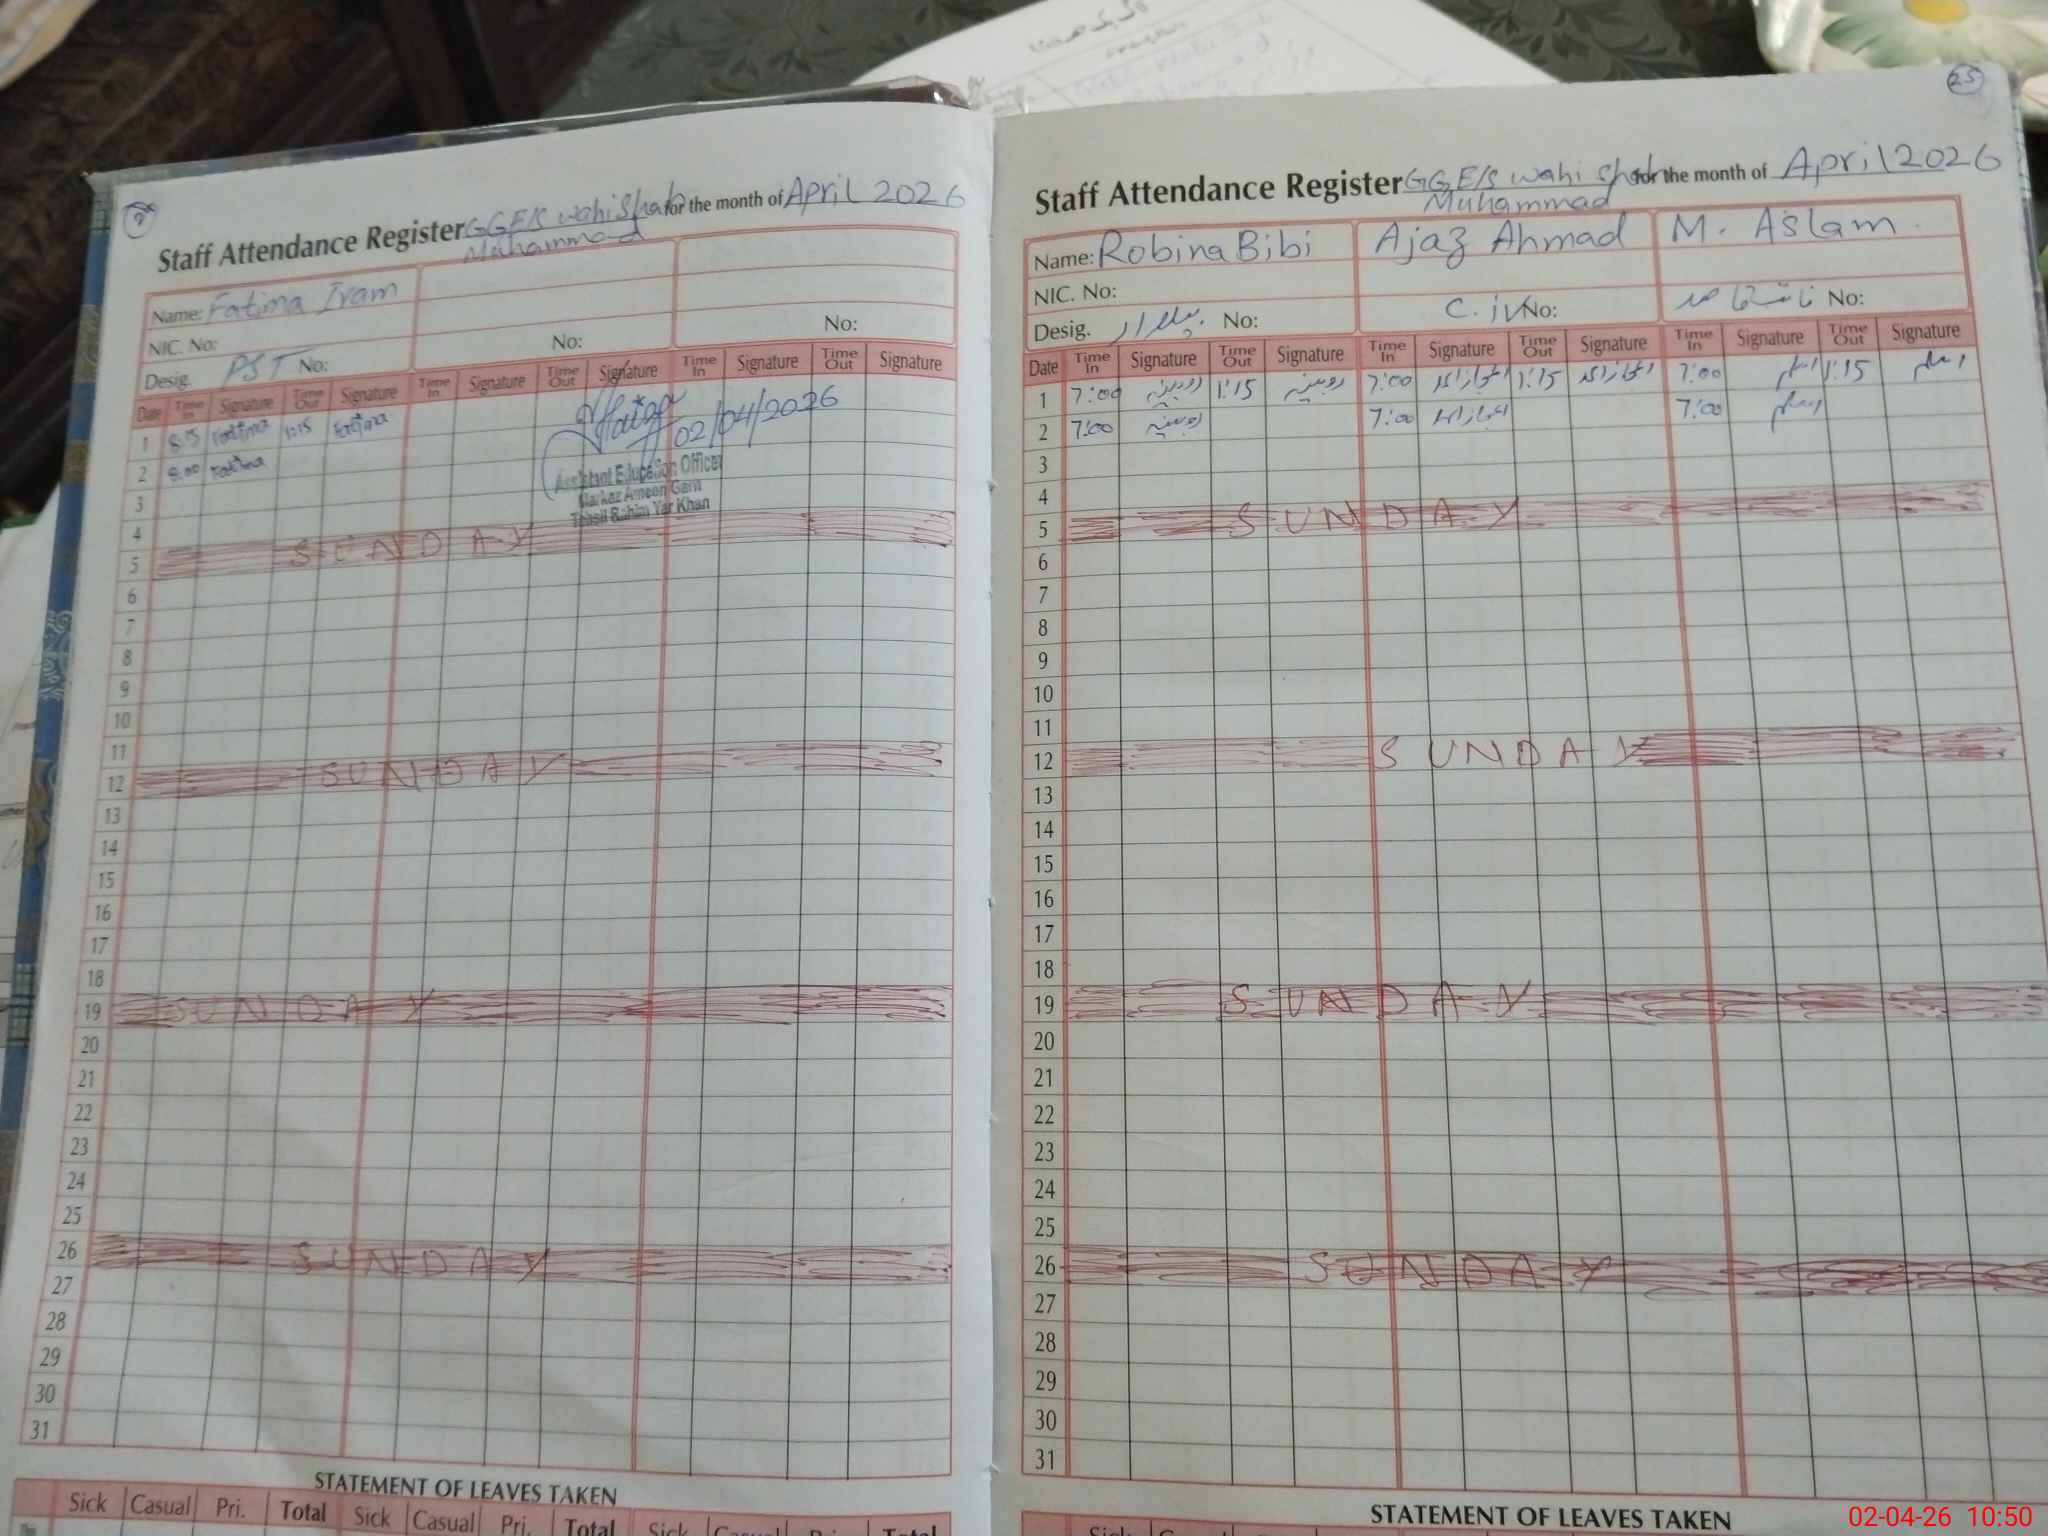 Staff Attendance Register GGE/S wahi Shah for the month of April 2026
Muhammad
Name: Fatima Iram
NIC. No:
Desig. PST No: No: No:
Date Time In Signature Time Out Signature Time In Signature Time Out Signature Time In Signature Time Out Signature
1 8:15 Fatima 1:15 Fatima
2 8:00 Fatima
02/04/2026
Assistant Education Officer
Markaz Ameen Garh
Tehsil Rahim Yar Khan
3
4
5 SUNDAY
6
7
8
9
10
11
12 SUNDAY
13
14
15
16
17
18
19 SUNDAY
20
21
22
23
24
25
26 SUNDAY
27
28
29
30
31
STATEMENT OF LEAVES TAKEN
Sick Casual Pri. Total Sick Casual Pri. Total Sick Casual Pri. Total
25
Staff Attendance Register GGE/S wahi Shah for the month of April 2026
Muhammad
Name: Robina Bibi Ajaz Ahmad M. Aslam
NIC. No:
Desig. No: C. iv No: No:
Date Time In Signature Time Out Signature Time In Signature Time Out Signature Time In Signature Time Out Signature
1 7:00 روبینہ 1:15 روبینہ 7:00 اعجاز احمد 1:15 اعجاز احمد 7:00 اسلم 1:15 اسلم
2 7:00 روبینہ 7:00 اعجاز احمد 7:00 اسلم
3
4
5 SUNDAY
6
7
8
9
10
11
12 SUNDAY
13
14
15
16
17
18
19 SUNDAY
20
21
22
23
24
25
26 SUNDAY
27
28
29
30
31
STATEMENT OF LEAVES TAKEN
Sick
02-04-26 10:50